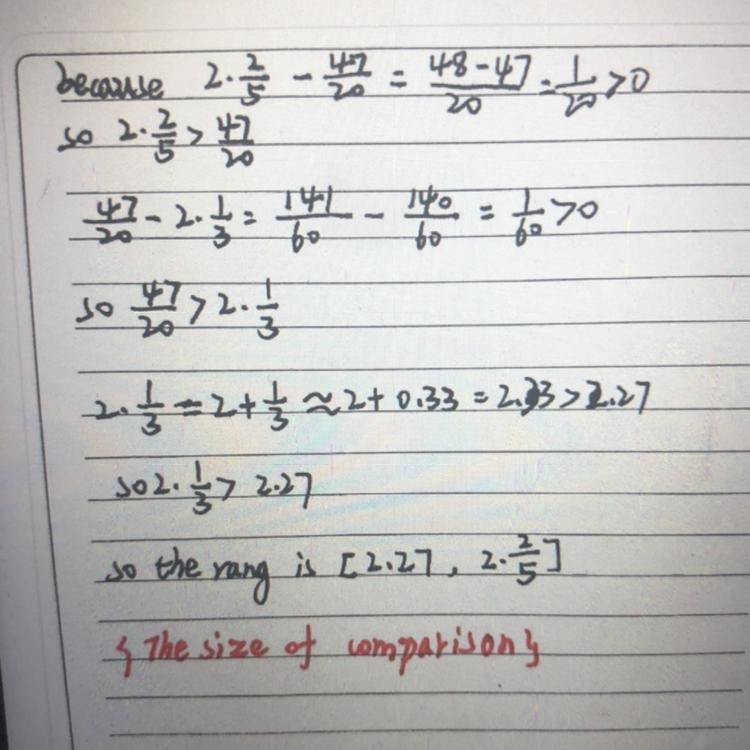 because 2·2/5 - 47/20 = 48-47/20 = 1/20 > 0
so 2·2/5 > 47/20
47/20 - 2·1/3 = 141/60 - 140/60 = 1/60 > 0
so 47/20 > 2·1/3
2·1/3 = 2 + 1/3 ≈ 2 + 0.33 = 2.33 > 2.27
so 2·1/3 > 2.27
so the rang is [2.27, 2·2/5]
{ The size of comparison }